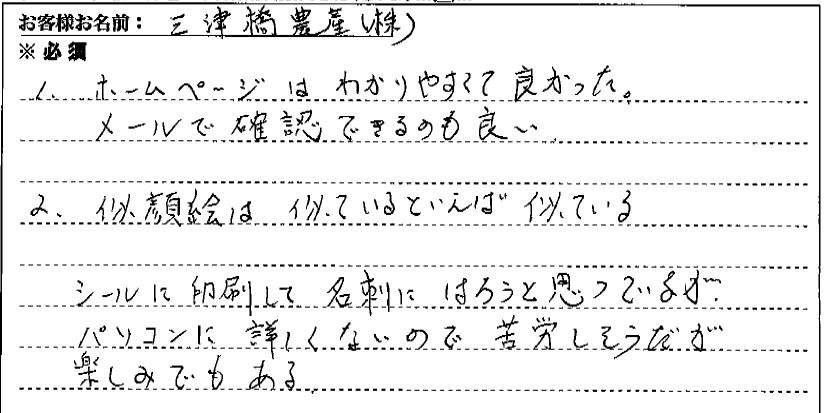 お客様お名前： 三津橋農産(株)
※必須
1. ホームページはわかりやすくて良かった。
メールで確認できるのも良い
2. 似顔絵は似ているといえば似ている
シールに印刷して名刺にはろうと思っているが、
パソコンに詳しくないので苦労しそうだが
楽しみでもある